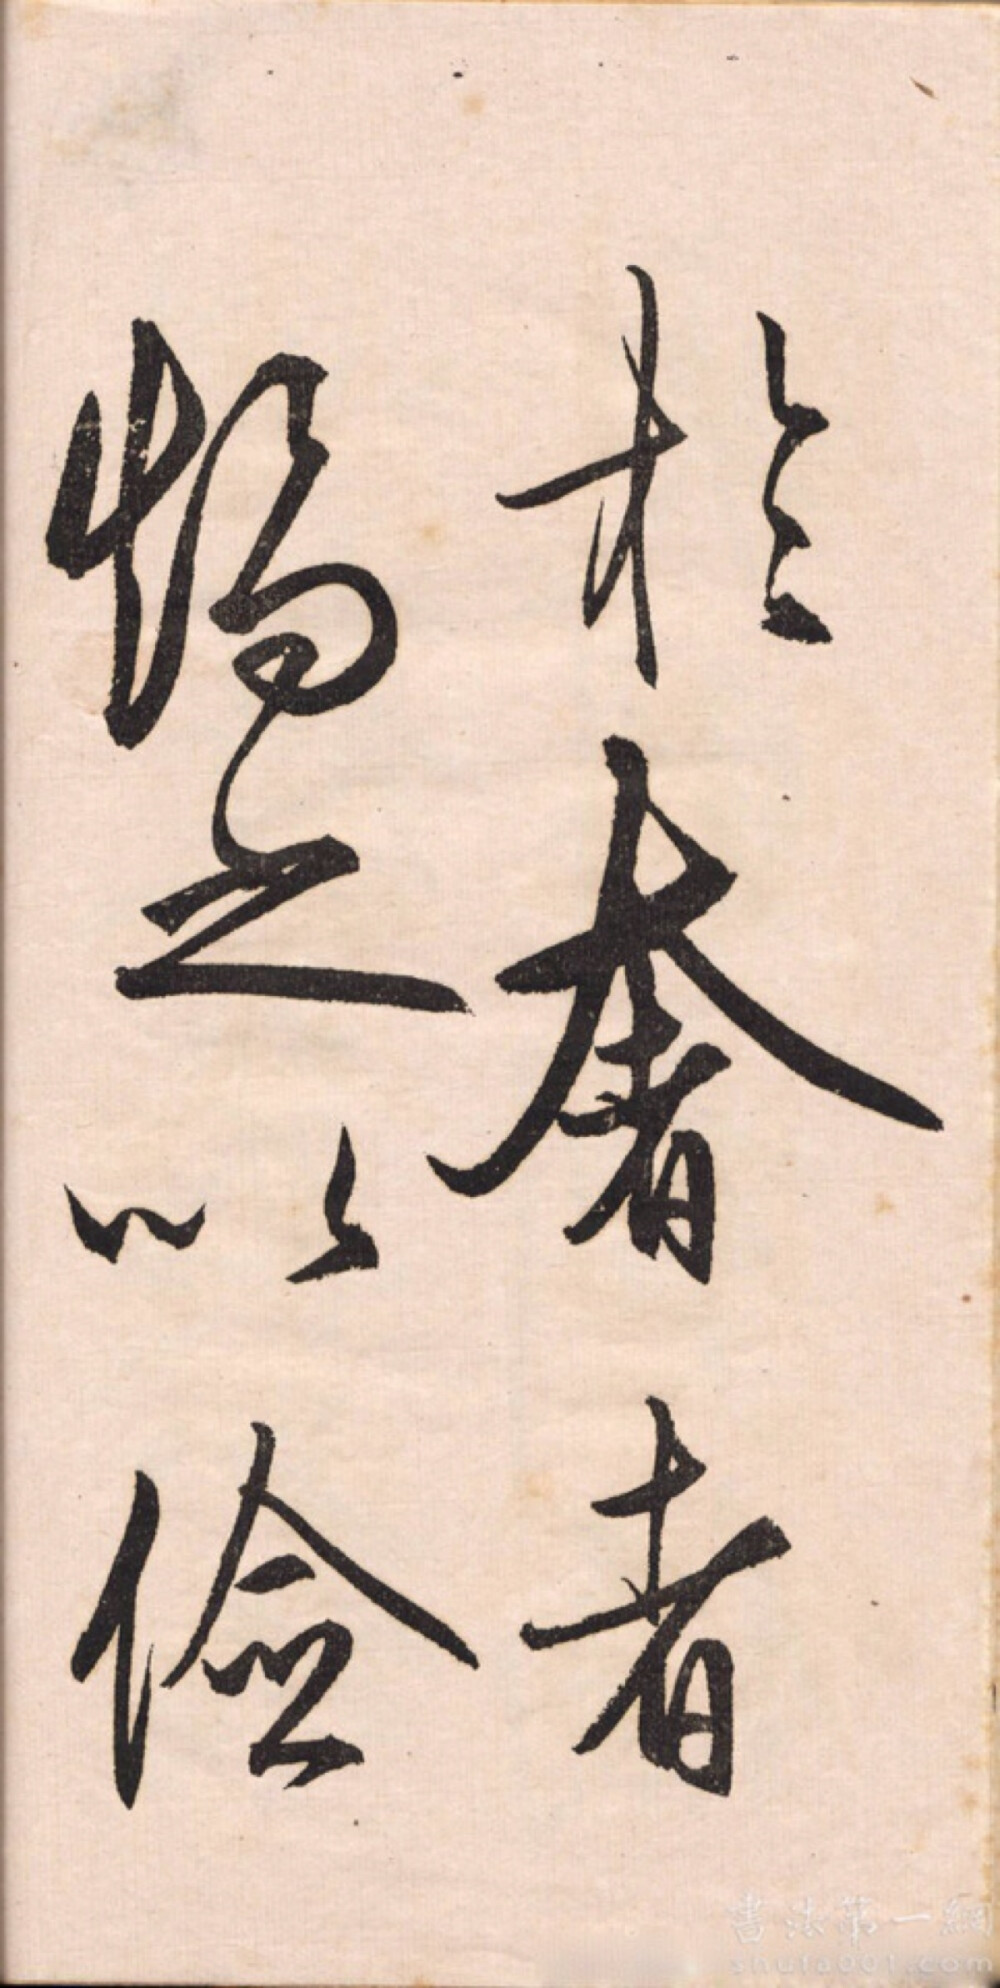 於奢者
之以儉
書法第一網
shufa001.com